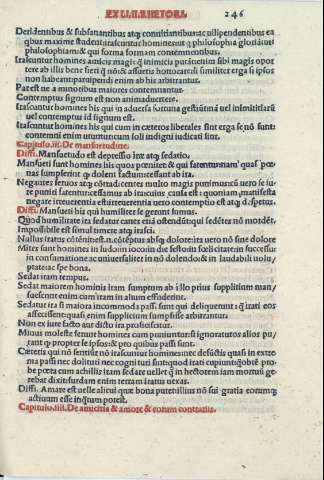 EX LI.II.RHETORI. 246
Deridentibus & subsannantibus atq; convitiantibus: ac uilipendentibus ea
qbus maxime student irascuntur homines: ut q philosophia gloriant ut
philosophiam: & qui forma formam contemnentibus.
Irascuntur homines amicis magis q inimicis putant enim sibi magis opor
tere ab illis bene fieri q nō: & assuetis honorare si similiter erga se ipsos
non habeant: parvipendi enim ab his arbitrantur.
Pat est ne a minoribus maiores contemnantur.
Contemptus signum est non animadvertere.
Irascuntur homines his qui in aduersa fortuna gestiunt uel
uel contemptu id signum est.
Irascuntur homines his qui cum in cæteros liberales sint erga se nō sunt:
contemni enim unumcum soli indigni iudicati sint.
Capitulo.iii. De mansuetudine.
Diffi. Mansuetudo est depressio iræ atq; sedatio.
Mansueti sunt homines his quos pœnitet: & qui fatentur nam quasi pœ
nas sumpserint q; dolent factum: cessant ab ira.
Negantes seruos atq; cōtradicentes multo magis punimus: uero se iu
re puniri fatentur: cessamus ab irascum: causa est: quoniam, manifesta
negare irreuerentia est: irreuerentia uero contemptio est atq; despetus.
Diffi. Mansueti his qui humiliter se gerunt sumus.
Quod humilitate ira sedatur canes etiā ostendunt: qui sedētes nō mordēt.
Impossibile est simul timere atq; irasci.
Nullus iratus
Mites sunt homines in ludo: in iocoin die festo: in fœlicitate: in successu:
in consumatione ac uniuersaliter in nō dolendo: & in laudabili uolu/
ptate: ac spe bona.
Sedat iram tempus.
Sedat maiorem hominis iram sumptum ab illo prius supplitium man/
suescunt enim cum iram in alium effuderint.
Sedatur ira si maiora incommoda passi sunt qui deliquerunt: q irati eos
affecissent: quasi enim supplicium sumpsisse arbitrantur.
Non ex iure facto aut dicto ira proficiscitur.
Minus moleste ferunt homines cum puniuntur: si ignoratutos illos pu/
tant q; propter se ipsos: & pro quibus passi sunt.
Cæteris qui nō sentiūt nō irascuntur homines: nec defūctis quasi in extre
ma passi nec dolituri nec cognituri sint: quod irati cupiunt: quobrē pro
be poeta cum achillis iram sedare uellet q in hectorem iam mortuū ge
rebat dixit: surdam enim terram iratus uexas.
Diffi. Amare est uelle alicui que bona putes illius nō sui gratia eorumq;
actiuum esse inquantum potest.
Capitulo.iiii. De amicitia & amore & eorum contrariis.